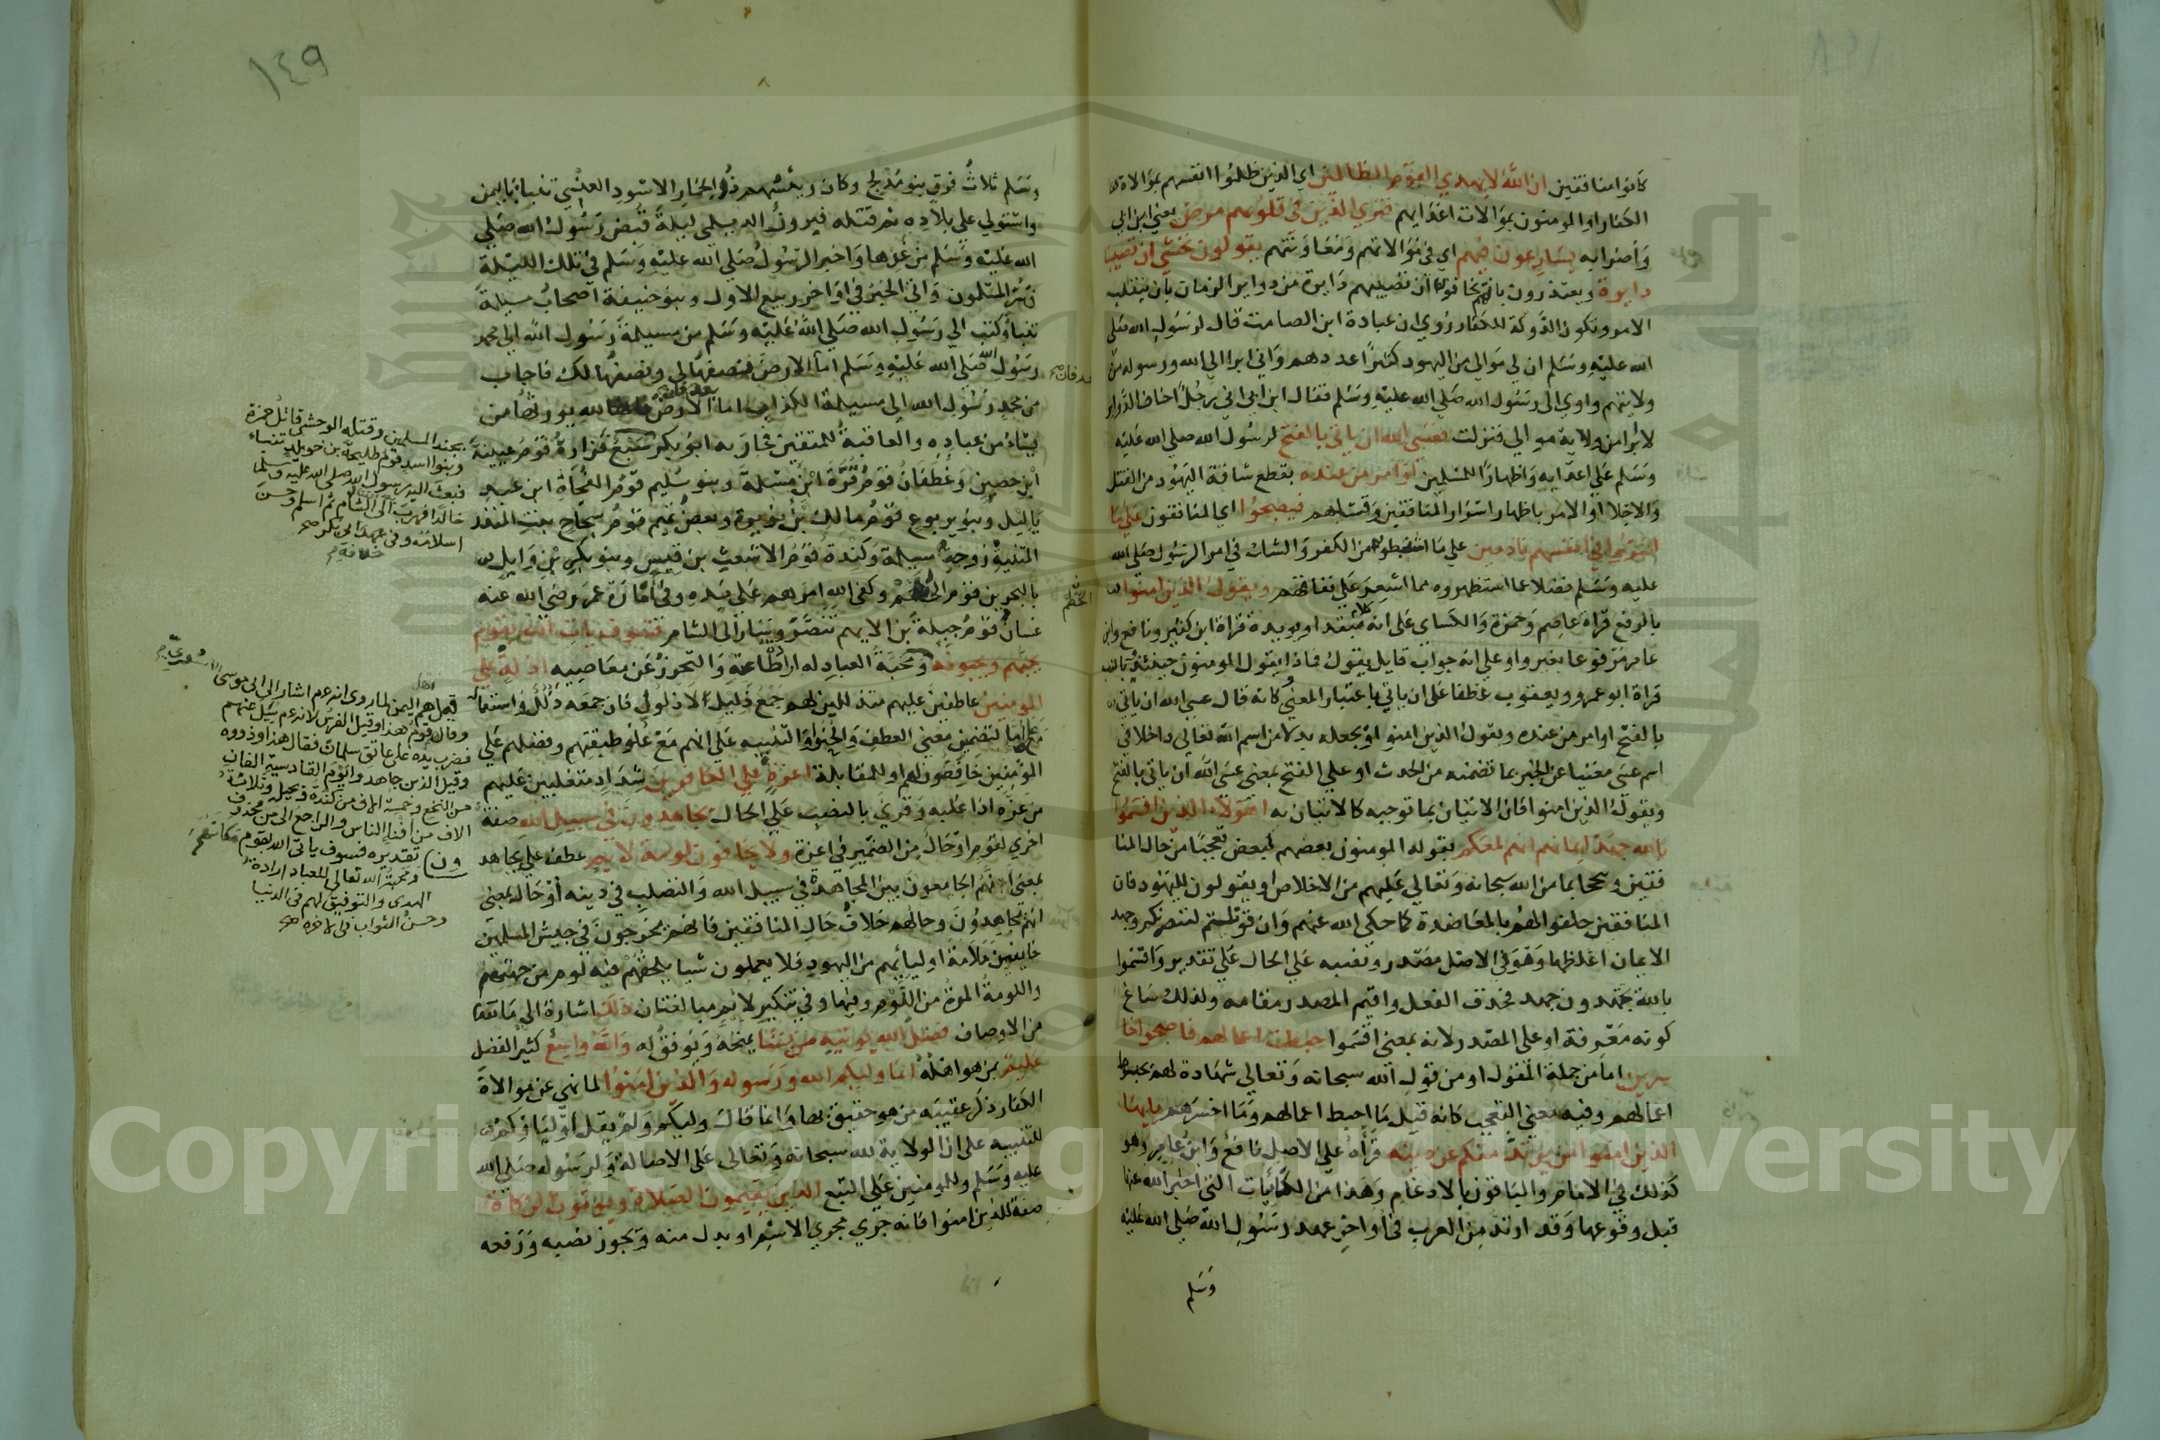 كانوا منافقين ان الله لا يهدي القوم الظالمين اي الذين ظلموا انفسهم بموالاة
الكفار او المومنون بموالات اعدايهم فتري الذين في قلوبهم مرض يعني ابن ابي
وأضرابه يسارعون فيهم اي في موالاتهم ومعاونتهم يقولون نخشي ان تصيبنا
دايرة ويعتذرون بانهم يخافون ان تصيبهم دايرة من دواير الزمان بان ينقلب
الامر وتكون الدولة للكفار روي ان عبادة ابن الصامت قال لرسول الله صلي
الله عليه وسلم ان لي موالي من اليهود كثيرا عددهم واني ابرا الي الله ورسوله من
ولايتهم واوي الي رسول الله صلي الله عليه وسلم فقال ابن ابي اني رجل اخاف الدواير
لا ابرا من ولاية موالي فنزلت فعسي الله ان ياتي بالفتح لرسول الله صلي الله عليه
وسلم علي اعدايه واظهار المسلمين او امر من عنده بقطع شافة اليهود من القتل
والاجلا او الامر باظهار اسرار المنافقين وقتلهم فيصبحوا اي المنافقون علي ما
اسروا في انفسهم نادمين علي ما استبطنوه من الكفر والشك في امر الرسول صلي الله
عليه وسلم فضلا عما استظهروه مما اشعر علي نفاقهم ويقول الذين امنوا
بالرفع قراة عاصم وحمزة والكساي علي انه كلام مبتدا ويويده قراة ابن كثير ونافع وابن
عامر مرفوعا بغير واو علي انه جواب قايل يقول فماذا يقول المومنون حينئذ
قراة ابو عمرو ويعقوب عطفا علي ان ياتي باعتبار المعني وكانه قال عسي الله ان ياتي
بالفتح او امر من عنده ويقول الذين امنوا او بجعله بدلا من اسم الله تعالي داخلا في
اسم عسي مغنيا عن الخبر بما تضمنه من الحدث او علي الفتح بمعني عسي الله ان ياتي بالفتح
وبقول الذين امنوا فان الاتيان بما توجبه كالاتيان به اهولاء الذين اقسموا
بالله جهد ايمانهم انهم لمعكم يقوله المومنون بعضهم لبعض تعجبا من حال المنا
فقين وتبجحا بما من الله سبحانه وتعالي عليهم من الاخلاص او يقولون لليهود فان
المنافقين حلفوا لهم بالمعاضدة كما حكي الله عنهم وان قوتلتم لننصرنكم وجهد
الايمان اغلظها وهو في الاصل مصدر ونصبه علي الحال علي تقدير واقسموا
بالله يجتهدون جهد فحذف الفعل واقيم المصدر مقامه ولذلك ساغ
كونه معرفة او علي المصدر لانه بمعني اقسموا حبطت اعمالهم فاصبحوا خا
سرين اما من جملة المقول او من قول الله سبحانه وتعالي شهادة لهم بحبوط
اعمالهم وفيه معني التعجب كانه قيل ما احبط اعمالهم وما اخسرهم يايها
الذين امنوا من يرتد منكم عن دينه قراه علي الاصل نافع وابن عامر وهو
كذلك في الامام والباقون بالادغام وهذا من الكائنات التي اخبر الله عنها
قبل وقوعها وقد ارتد من العرب في اواخر عهد رسول الله صلي الله عليه
وسلم
١٤٩
وسلم ثلاث فرق بنو مدلج وكان رئيسهم ذو الخمار الاسود العنسي تنبا باليمن
واستولي علي بلاده ثم قتله فيروز الديلمي ليلة قبض رسول الله صلي
الله عليه وسلم من غدها واخبر الرسول صلي الله عليه وسلم في تلك الليلة
فسر المسلمون واتي الخبر في اواخر ربيع الاول وبنو حنيفة اصحاب مسيلمة
تنبا وكتب الي رسول الله صلي الله عليه وسلم من مسيلمة رسول الله الي محمد
رسول الله صلي الله عليه وسلم اما الارض فنصفها لي ونصفها لك فاجاب
من محمد رسول الله الي مسيلمة الكذاب اما بعد فان الارض لله يورثها من
يشاء من عباده والعاقبة للمتقين فحاربه ابو بكر سبع فزارة قوم عيينة
ابن حصين وغطفان قوم قرة ابن مسلمة وبنو سليم قوم الفجاة ابن عبد
ياليل وبنو يربوع قوم مالك بن نويرة وبعض تميم قوم سجاح بنت المنذر
المتنبية زوجة مسيلمة وكندة قوم الاشعث بن قيس وبنو بكر بن وايل
بالبحرين قوم الحطم وكفي الله امرهم علي يده وفي امارة عمر رضي الله عنه
غسان قوم جبلة بن الايهم تنصر وسار الي الشام فسوف ياتي الله بقوم
يحبهم ويحبونه ومحبة العباد له ارادة طاعته والتحرز عن معاصيه اذلة علي
المومنين عاطفين عليهم متذللين لهم جمع ذليل لا ذلول فان جمعه ذلل واستعماله
مع علي اما لتضمين معني العطف والحنو او التنبيه علي انهم مع علو طبقتهم وفضلهم علي
المومنين خافضون لهم او للمقابلة اعزة علي الكافرين شداد متغلبين عليهم
من عزه اذا غلبه وقري بالنصب علي الحال يجاهدون في سبيل الله صفة
اخري لقوم او حال من الضمير في اعزة ولا يخافون لومة لايم عطف علي يجاهد
بمعني انهم الجامعون بين المجاهدة في سبيل الله والتصلب في دينه او حال بمعني
انهم يجاهدون وحالهم خلاف حال المنافقين فانهم يخرجون في جيش المسلمين
خايفين ملامة اوليائهم من اليهود فلا يعملون شيا يلحقهم فيه لوم من جهتهم
واللومة المرة من اللوم وفيها وفي تنكير لايم مبالغتان ذلك اشارة الي ما تقدم
من الاوصاف فضل الله يوتيه من يشا يمنحه ويوفق له والله واسع كثير الفضل
عليم بمن هو اهله انما وليكم الله ورسوله والذين امنوا لما نهي عن موالاة
الكفار ذكر عقيبه من هو حقيق بها وانما قال وليكم ولم يقل اولياوكم
للتنبيه علي ان الولاية لله سبحانه وتعالي علي الاصالة ولرسوله صلي الله
عليه وسلم وللمومنين علي التبع الذين يقيمون الصلاة ويوتون الزكاة
صفة للذين امنوا فانه جري مجري الاسم او بدل منه ويجوز نصبه ورفعه
بعد فان صح
الحطم
بجند المسلمين وقتله الوحشي قاتل حمزة
وبنوا اسد قوم طليحة بن خويلد تنباء
فبعث اليه رسول الله صلى الله عليه وسلم
خالدا فهرب الى الشام ثم اسلم وحسن
اسلامه وفى عهد ابى بكر صح
خلافة
قيل هم اهل اليمن لما روى انه عم اشار الى ابى موسى
وقال قوم هذا وقيل الفرس لانه عم سئل عنهم
فضرب يده على عاتق سلمان فقال هذا وذووه
وقيل الذين جاهدوا يوم القادسية الفان
من النخع وخمسة الاف من كندة وبجيلة وثلاثة
الاف من افناء الناس والراجع الى من محذوف
تقديره فسوف ياتى الله بقوم مكانهم
ومحبة الله تعالى للعباد ارادة
الهدى والتوفيق لهم فى الدنيا
وحسن الثواب فى الاخرة صح
Copyright © King Saud University